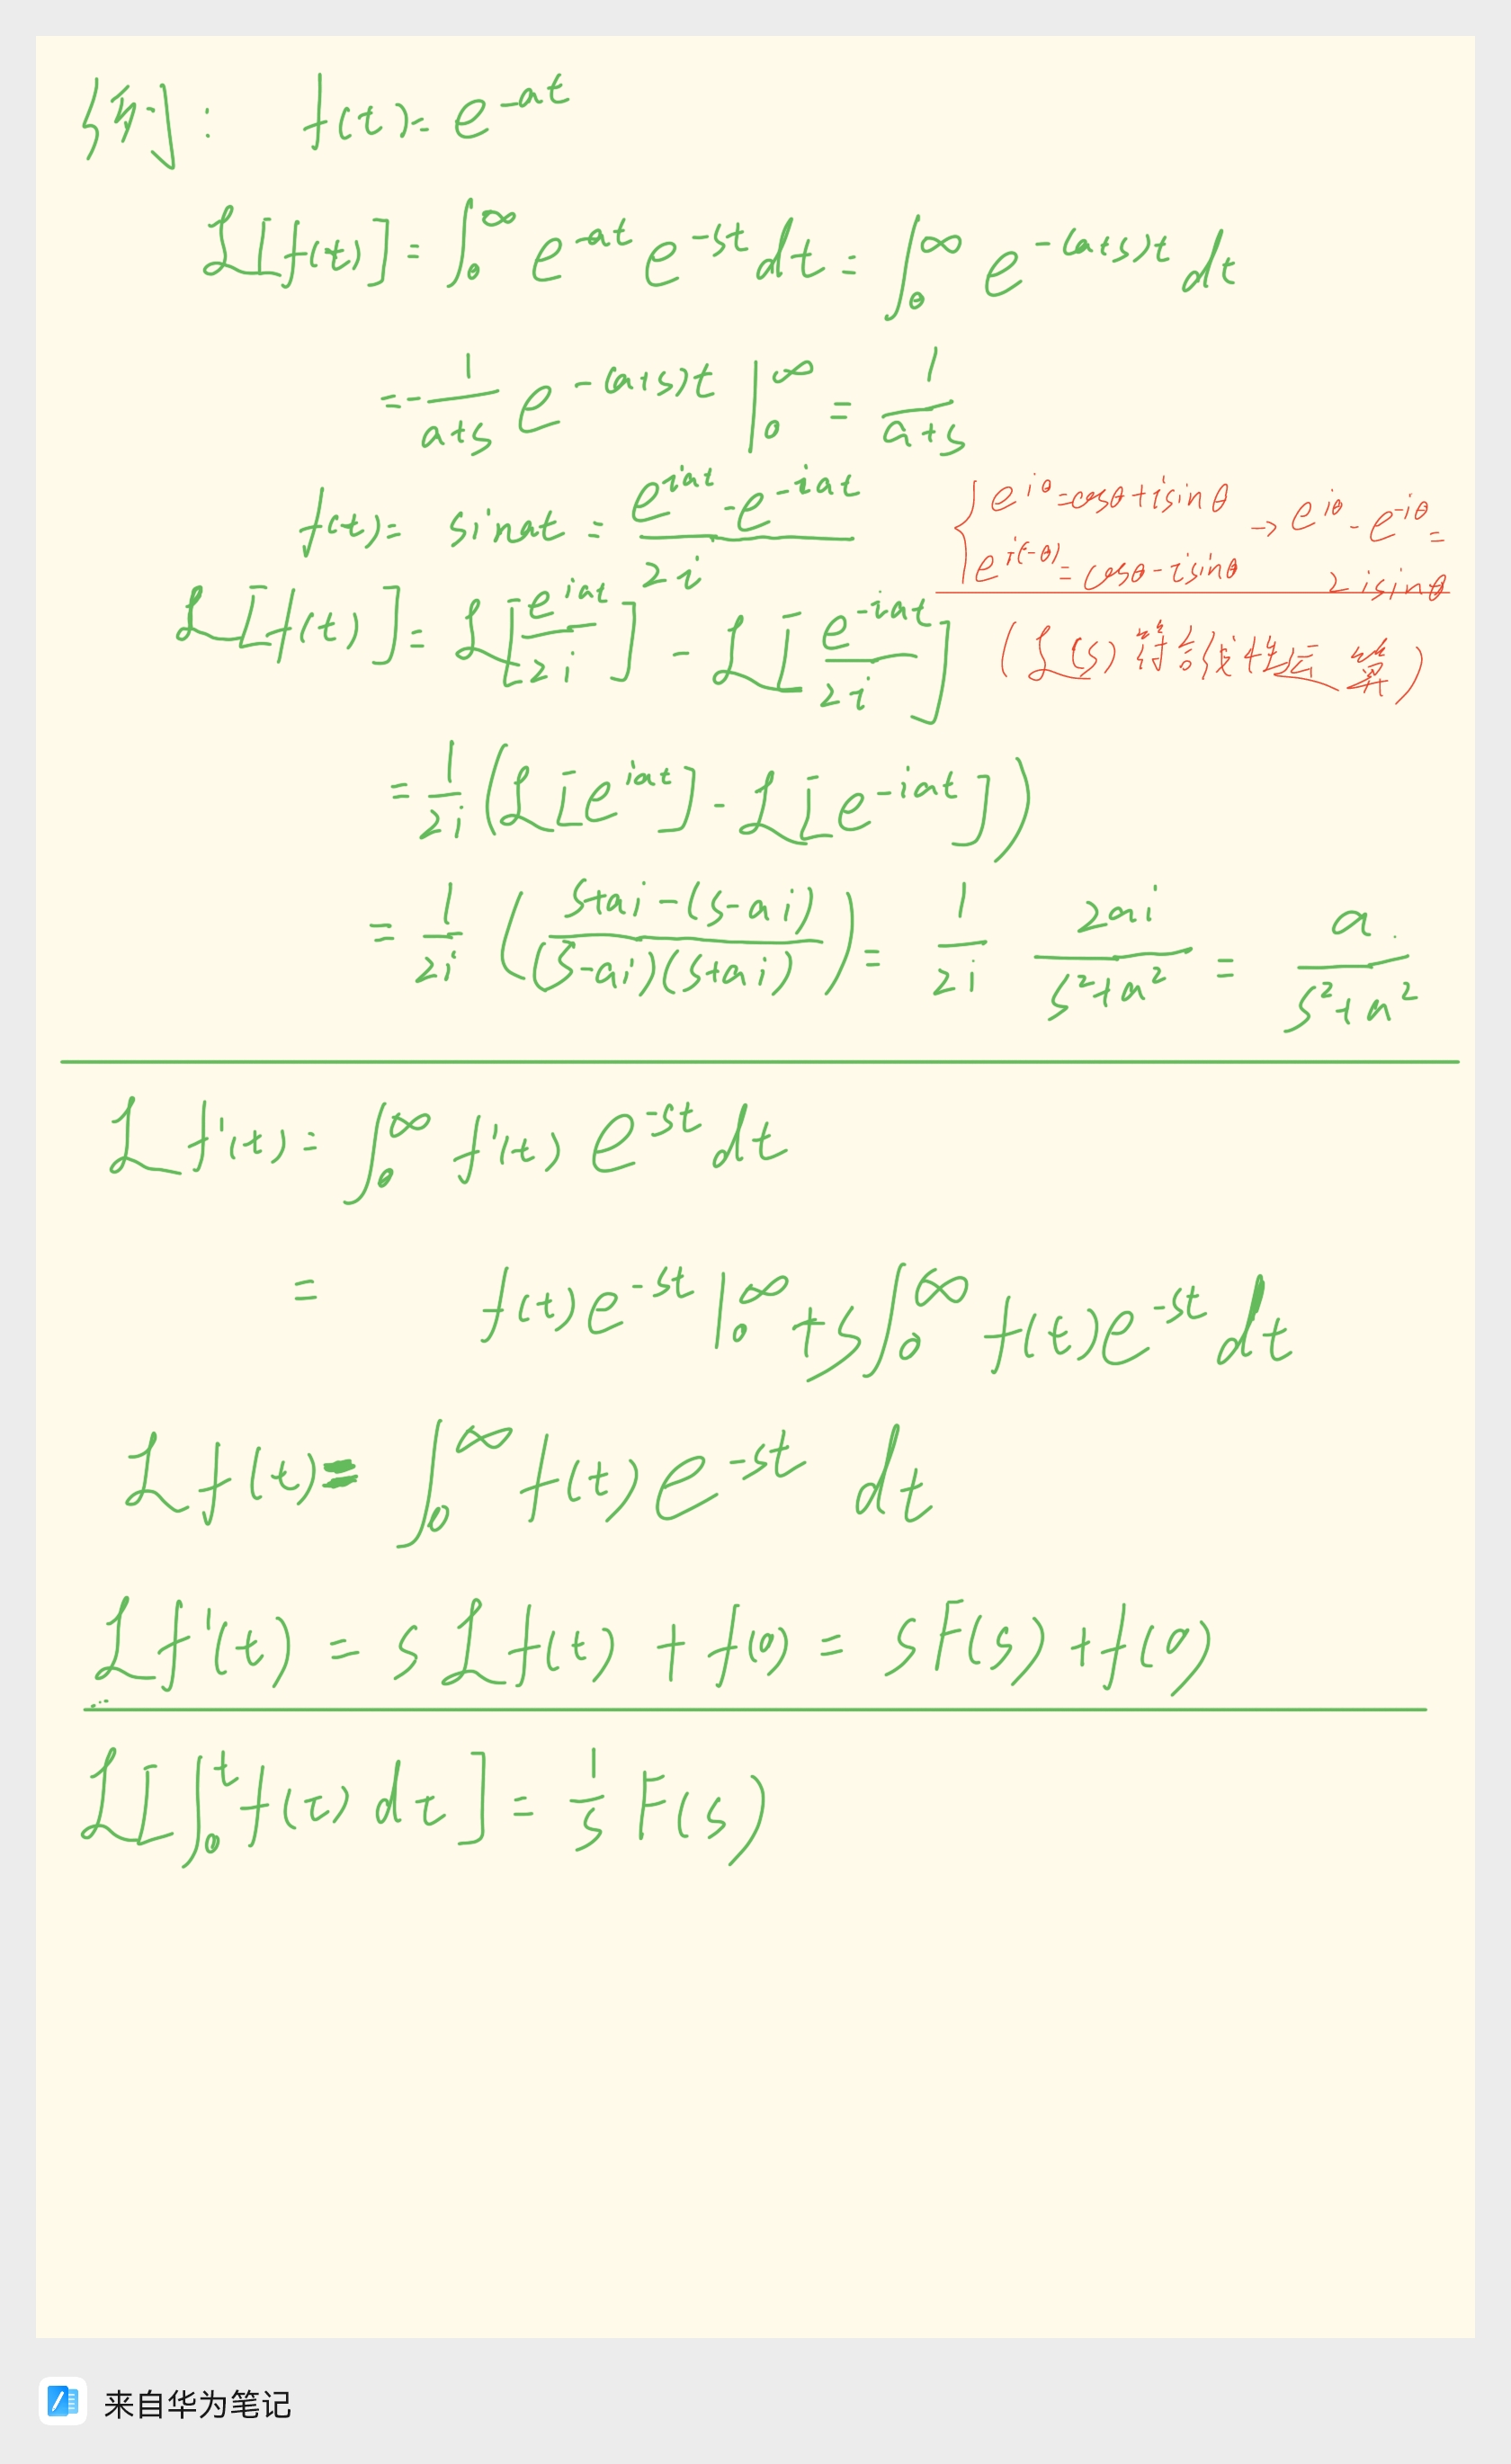 例: f(t)= e^{-at}
ℒ[f(t)] = ∫_0^∞ e^{-at} e^{-st} dt = ∫_0^∞ e^{-(a+s)t} dt
= -\frac{1}{a+s} e^{-(a+s)t} |_0^∞ = \frac{1}{a+s}
f(t)= sinat = \frac{e^{iat} - e^{-iat}}{2i}
{ e^{iθ}=cosθ+isinθ
e^{i(-θ)}=cosθ-isinθ
→ e^{iθ} - e^{-iθ} =
2isinθ
ℒ[f(t)] = ℒ[\frac{e^{iat}}{2i}] - ℒ[\frac{e^{-iat}}{2i}]
(ℒ(s) 符合线性运算)
= \frac{1}{2i} (ℒ[e^{iat}] - ℒ[e^{-iat}])
= \frac{1}{2i} (\frac{s+ai-(s-ai)}{(s-ai)(s+ai)}) = \frac{1}{2i} \frac{2ai}{s^2+a^2} = \frac{a}{s^2+a^2}
ℒ f'(t) = ∫_0^∞ f'(t) e^{-st} dt
= f(t)e^{-st} |_0^∞ + s∫_0^∞ f(t)e^{-st} dt
ℒ f(t) = ∫_0^∞ f(t) e^{-st} dt
ℒ f'(t) = s ℒ f(t) + f(0) = sF(s) + f(0)
ℒ[∫_0^t f(τ) dτ] = \frac{1}{s} F(s)
来自华为笔记